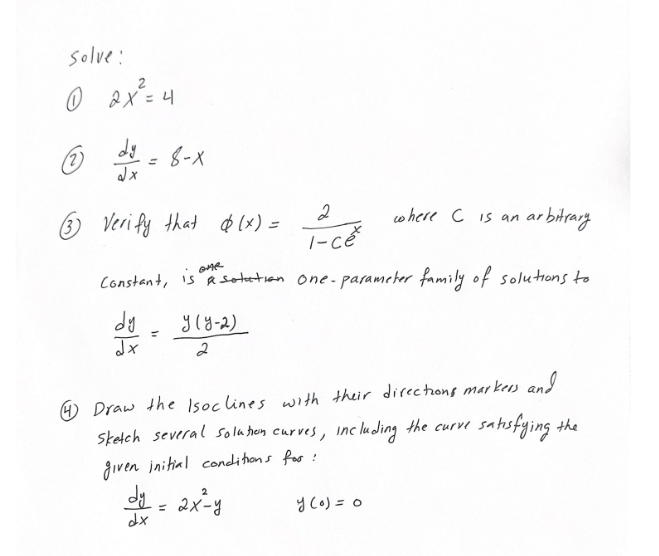 Solve:
① 2x² = 4
② dy/dx = 8-x
③ Verify that φ(x) = 2/(1-ce^x) where C is an arbitrary
Constant, is one-parameter family of solutions to
dy/dx = y(y-2)/2
④ Draw the Isoclines with their directions markers and
Sketch several solution curves, including the curve satisfying the
given initial conditions for:
dy/dx = 2x²-y y(0) = 0